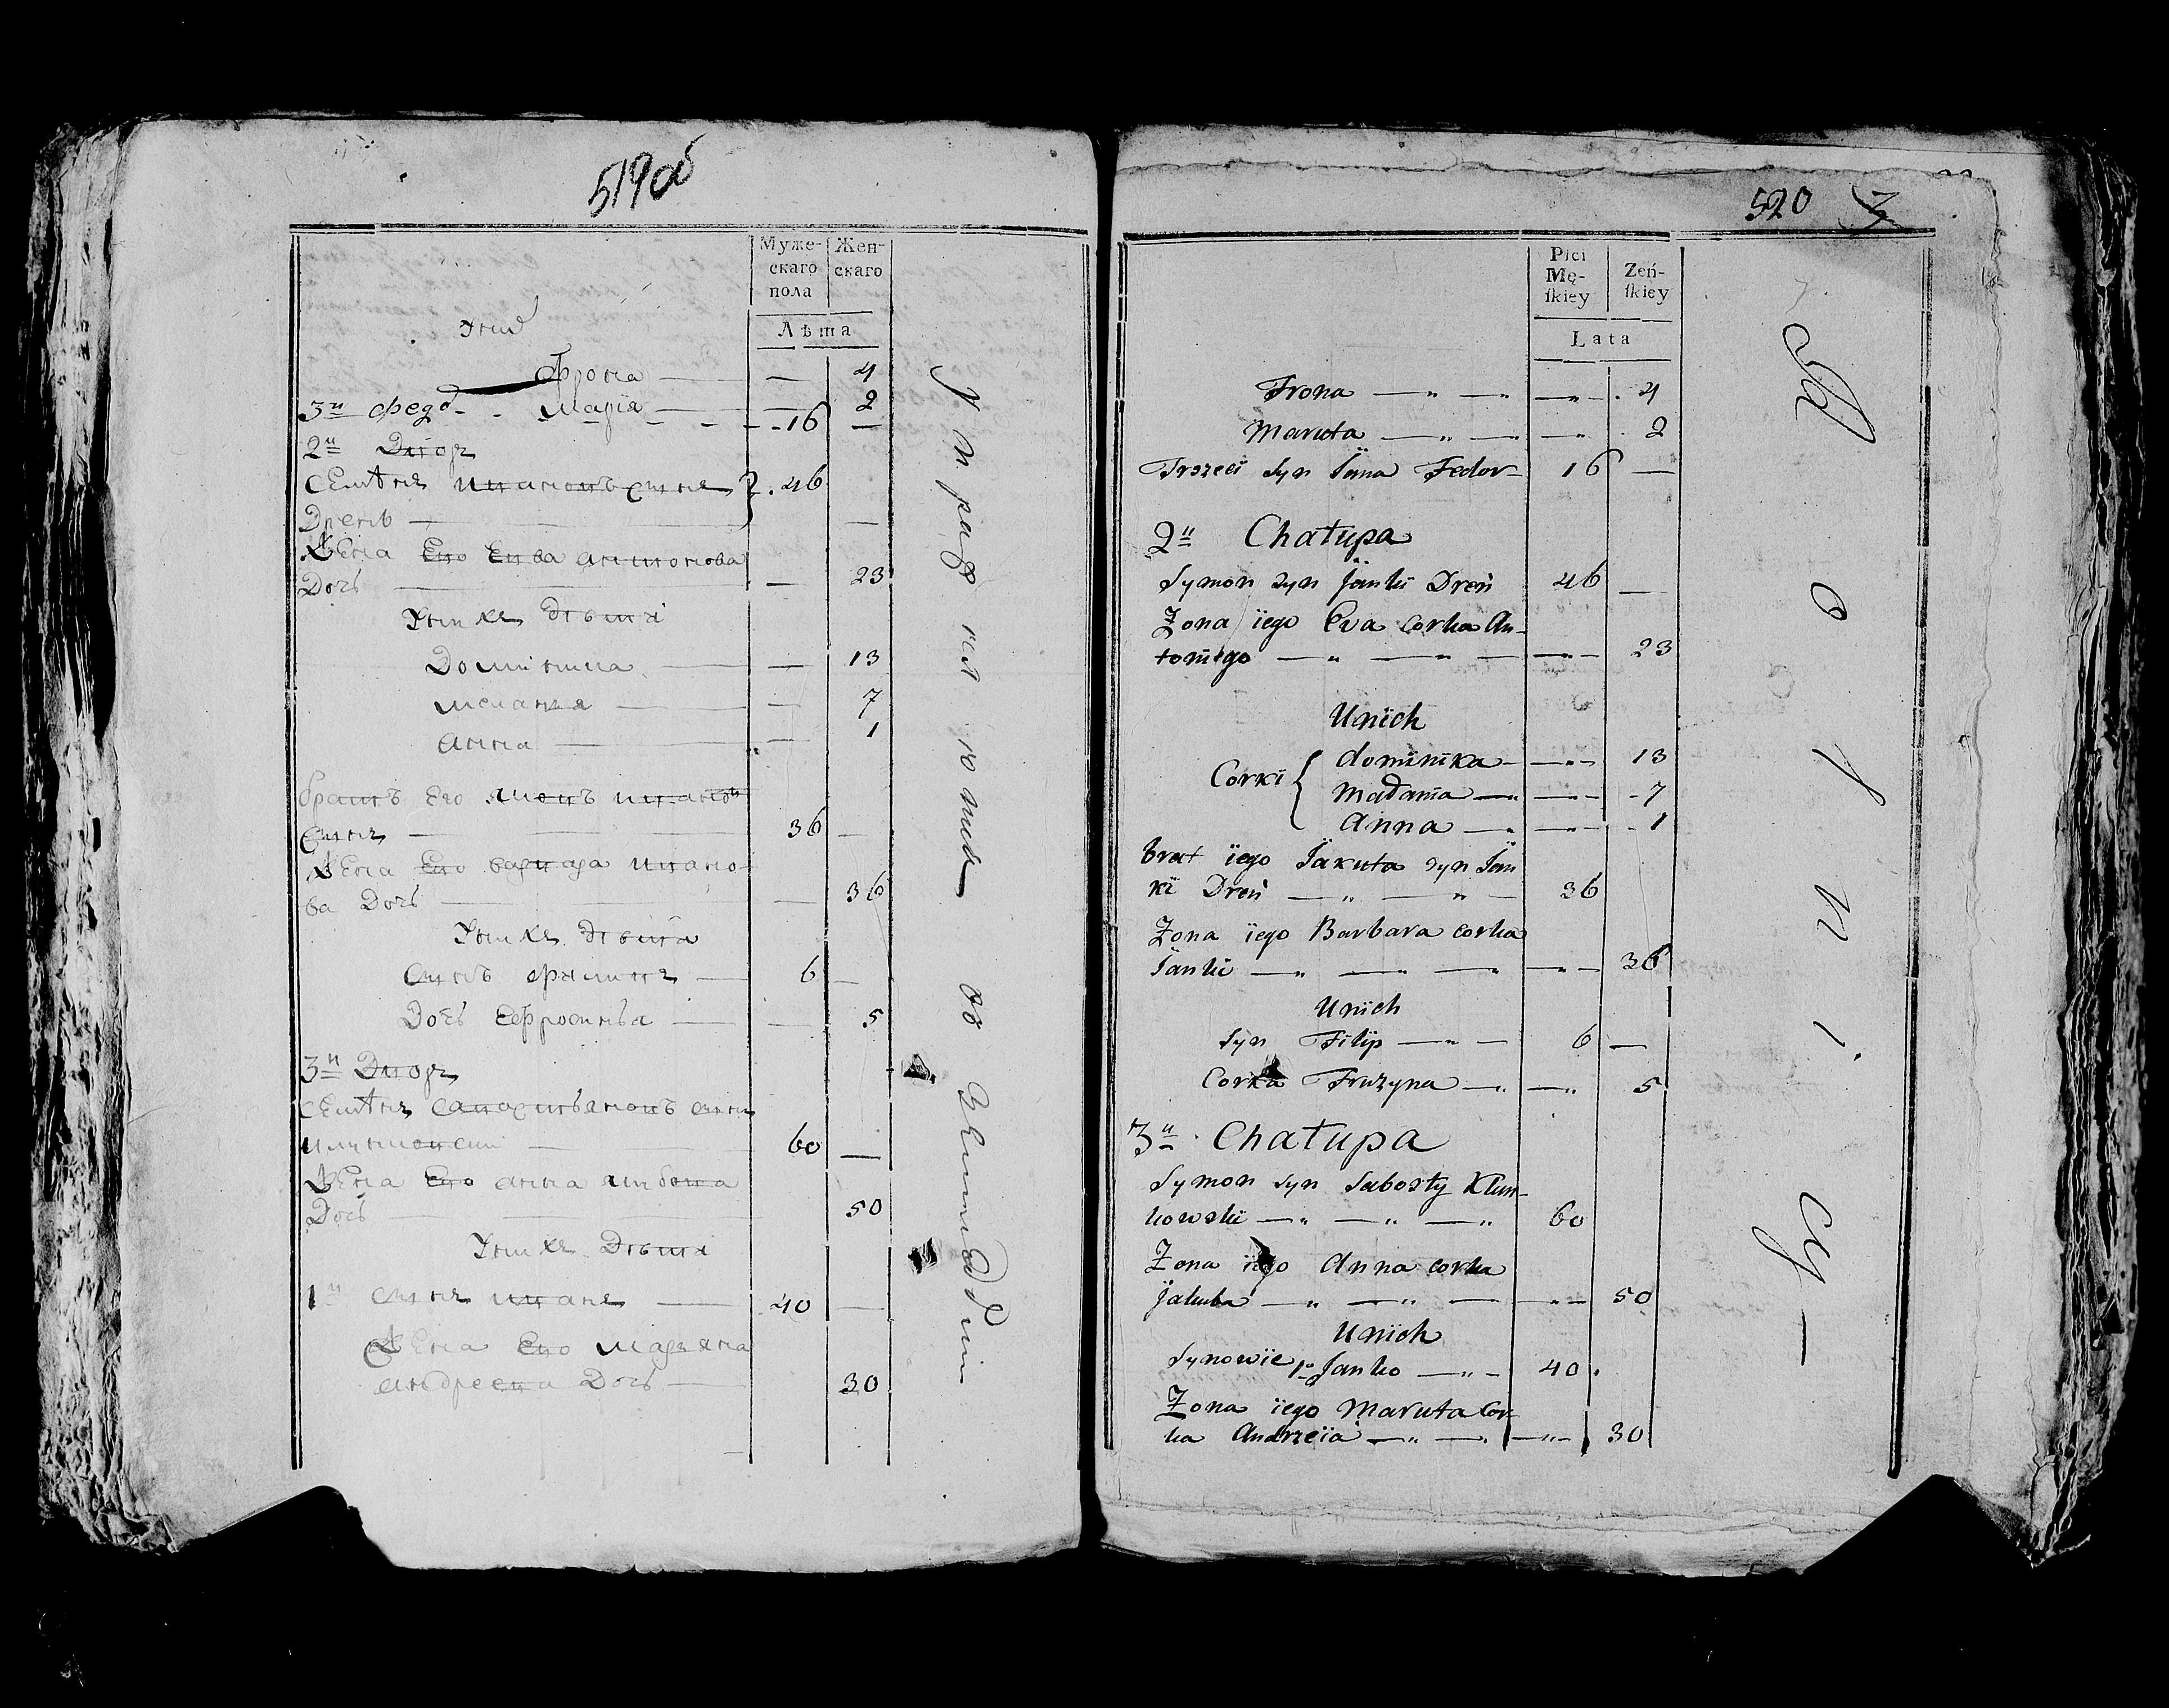 519об
Муже-
скаго
пола
Жен-
скаго
Лѣта
Фрона — — 4
3й Федор Марія — — 2
16 —
2й Дворъ
Семенъ Ивановъ сынъ 46
Дрень — —
Жена Его Ева антонова
Дочь — — 23
У нихъ Дѣти
Домініка — — 13
Меланья — — 7
Анна — — 1
братъ Его Яковъ Иванов
Сынъ — 36 —
Жена Его варвара Ивано-
ва Дочь — — 36
У нихъ Дѣти
Сынъ Филипъ — 6 —
Дочь Ефросинья — — 5
3й Дворъ
Семенъ сынъ
60 —
Жена Его анна якубова
Дочь — 50
У нихъ Дѣти
1й Сынъ Иванъ — 40 —
Жена Его Марьяна
андреева Дочь — 30
520
Płci
Mę-
ſkiey
Zeń-
ſkiey
Lata
Frona — „ — „ — „ — 4
Maruta — „ — „ — „ 2
Trzeci Syn Jana Fedor — 16 —
2u Chałupa
Symon syn Janki Dreń 46 —
Zona iego Eva corka An-
toniego — „ — „ — — „ — 23
Unich
Corki { dominika — — „ — 13
Madania — „ — „ — 7
Anna — „ — „ — 1
brat iego Jakuta syn Jan
ki Dreń — „ — „ — 36
Zona iego Barbara corka
Janki — „ — „ — „ — „ — 36
Unich
Syn Filip — „ — 6 —
Corka Fruzyna — „ — „ 5
3u Chałupa
Symon syn Sabosty Klim-
kowski — „ — „ — „ 60
Zona iego Anna corka
Jakuba — „ — „ — „ — 50
Unich
Synowie 1o Janko — „ — 40
Zona iego Maruta Cor-
ka Andrzeia — „ — „ — „ — 30